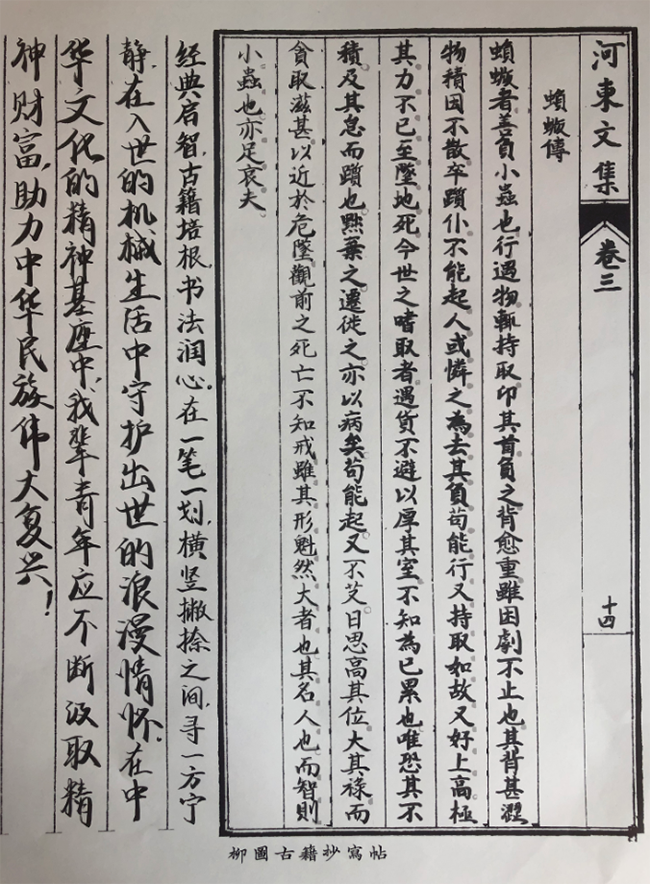 河東文集 卷三 十四
蝜蝂傳
蝜蝂者善負小蟲也行遇物輒持取卬其首負之背愈重雖困劇不止也其背甚澀
物積因不散卒躓仆不能起人或憐之為去其負苟能行又持取如故又好上高極
其力不已至墜地死今世之嗜取者遇貨不避以厚其室不知為已累也唯恐其不
積及其怠而躓也黜棄之遷徙之亦以病矣苟能起又不艾日思高其位大其祿而
貪取滋甚以近於危墜觀前之死亡不知戒雖其形魁然大者也其名人也而智則
小蟲也亦足哀夫
经典启智,古籍培根,书法润心,在一笔一划,横竖撇捺之间,寻一方宁
静,在入世的机械生活中守护出世的浪漫情怀,在中
华文化的精神基座中,我辈青年应不断汲取精
神财富,助力中华民族伟大复兴!
柳國古籍抄寫帖